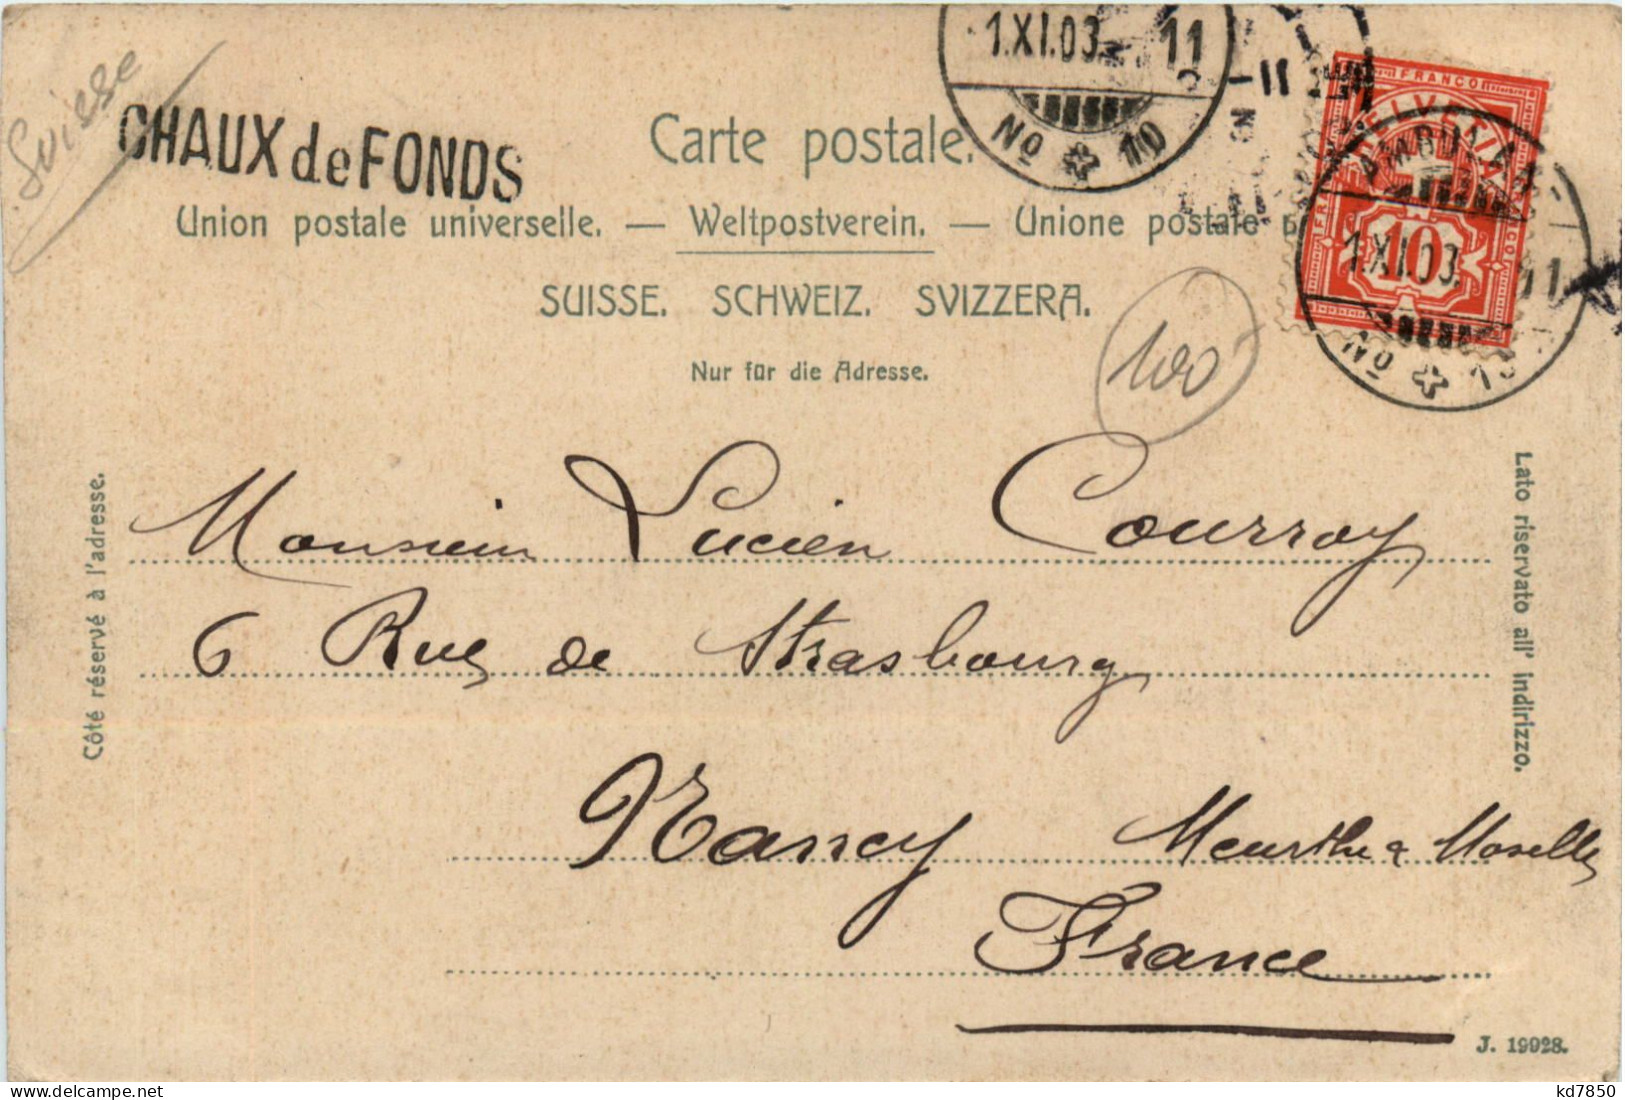 Suisse
CHAUX de FONDS
1.XI.03. 11
No 10
Carte postale.
Union postale universelle. — Weltpostverein. — Unione postale
SUISSE. SCHWEIZ. SVIZZERA.
Nur für die Adresse.
100
FRANCO
HELVETIA
10
AMBULANT
1.XI.03. 11
No
Côté réservé à l'adresse.
Lato riservato all' indirizzo.
Monsieur Lucien Courroy
6 Rue de Strasbourg
Nancy Meurthe & Moselle
France
J. 19928.
kd7850